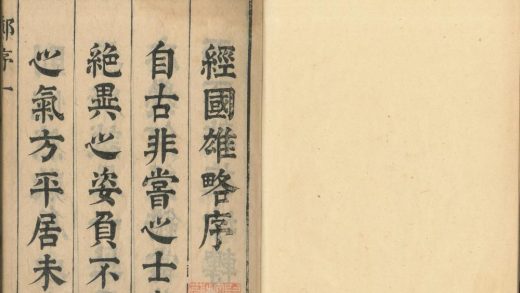 經國雄略序
自古非嘗之士
絕異之姿負不
之氣方平居未
鄭序一